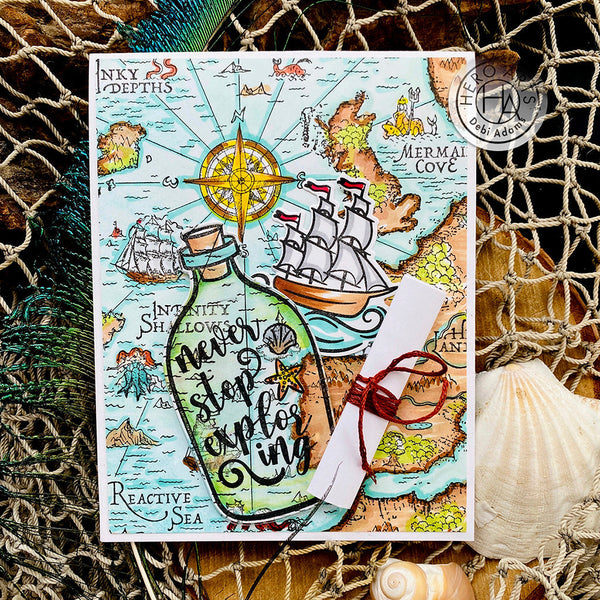 INKY
DEPTHS
HERO ARTS
HA
Debi Adams
MERMAID
COVE
N
INFINITY
SHALLOWS
never
stop
explor
ing
REACTIVE
SEA